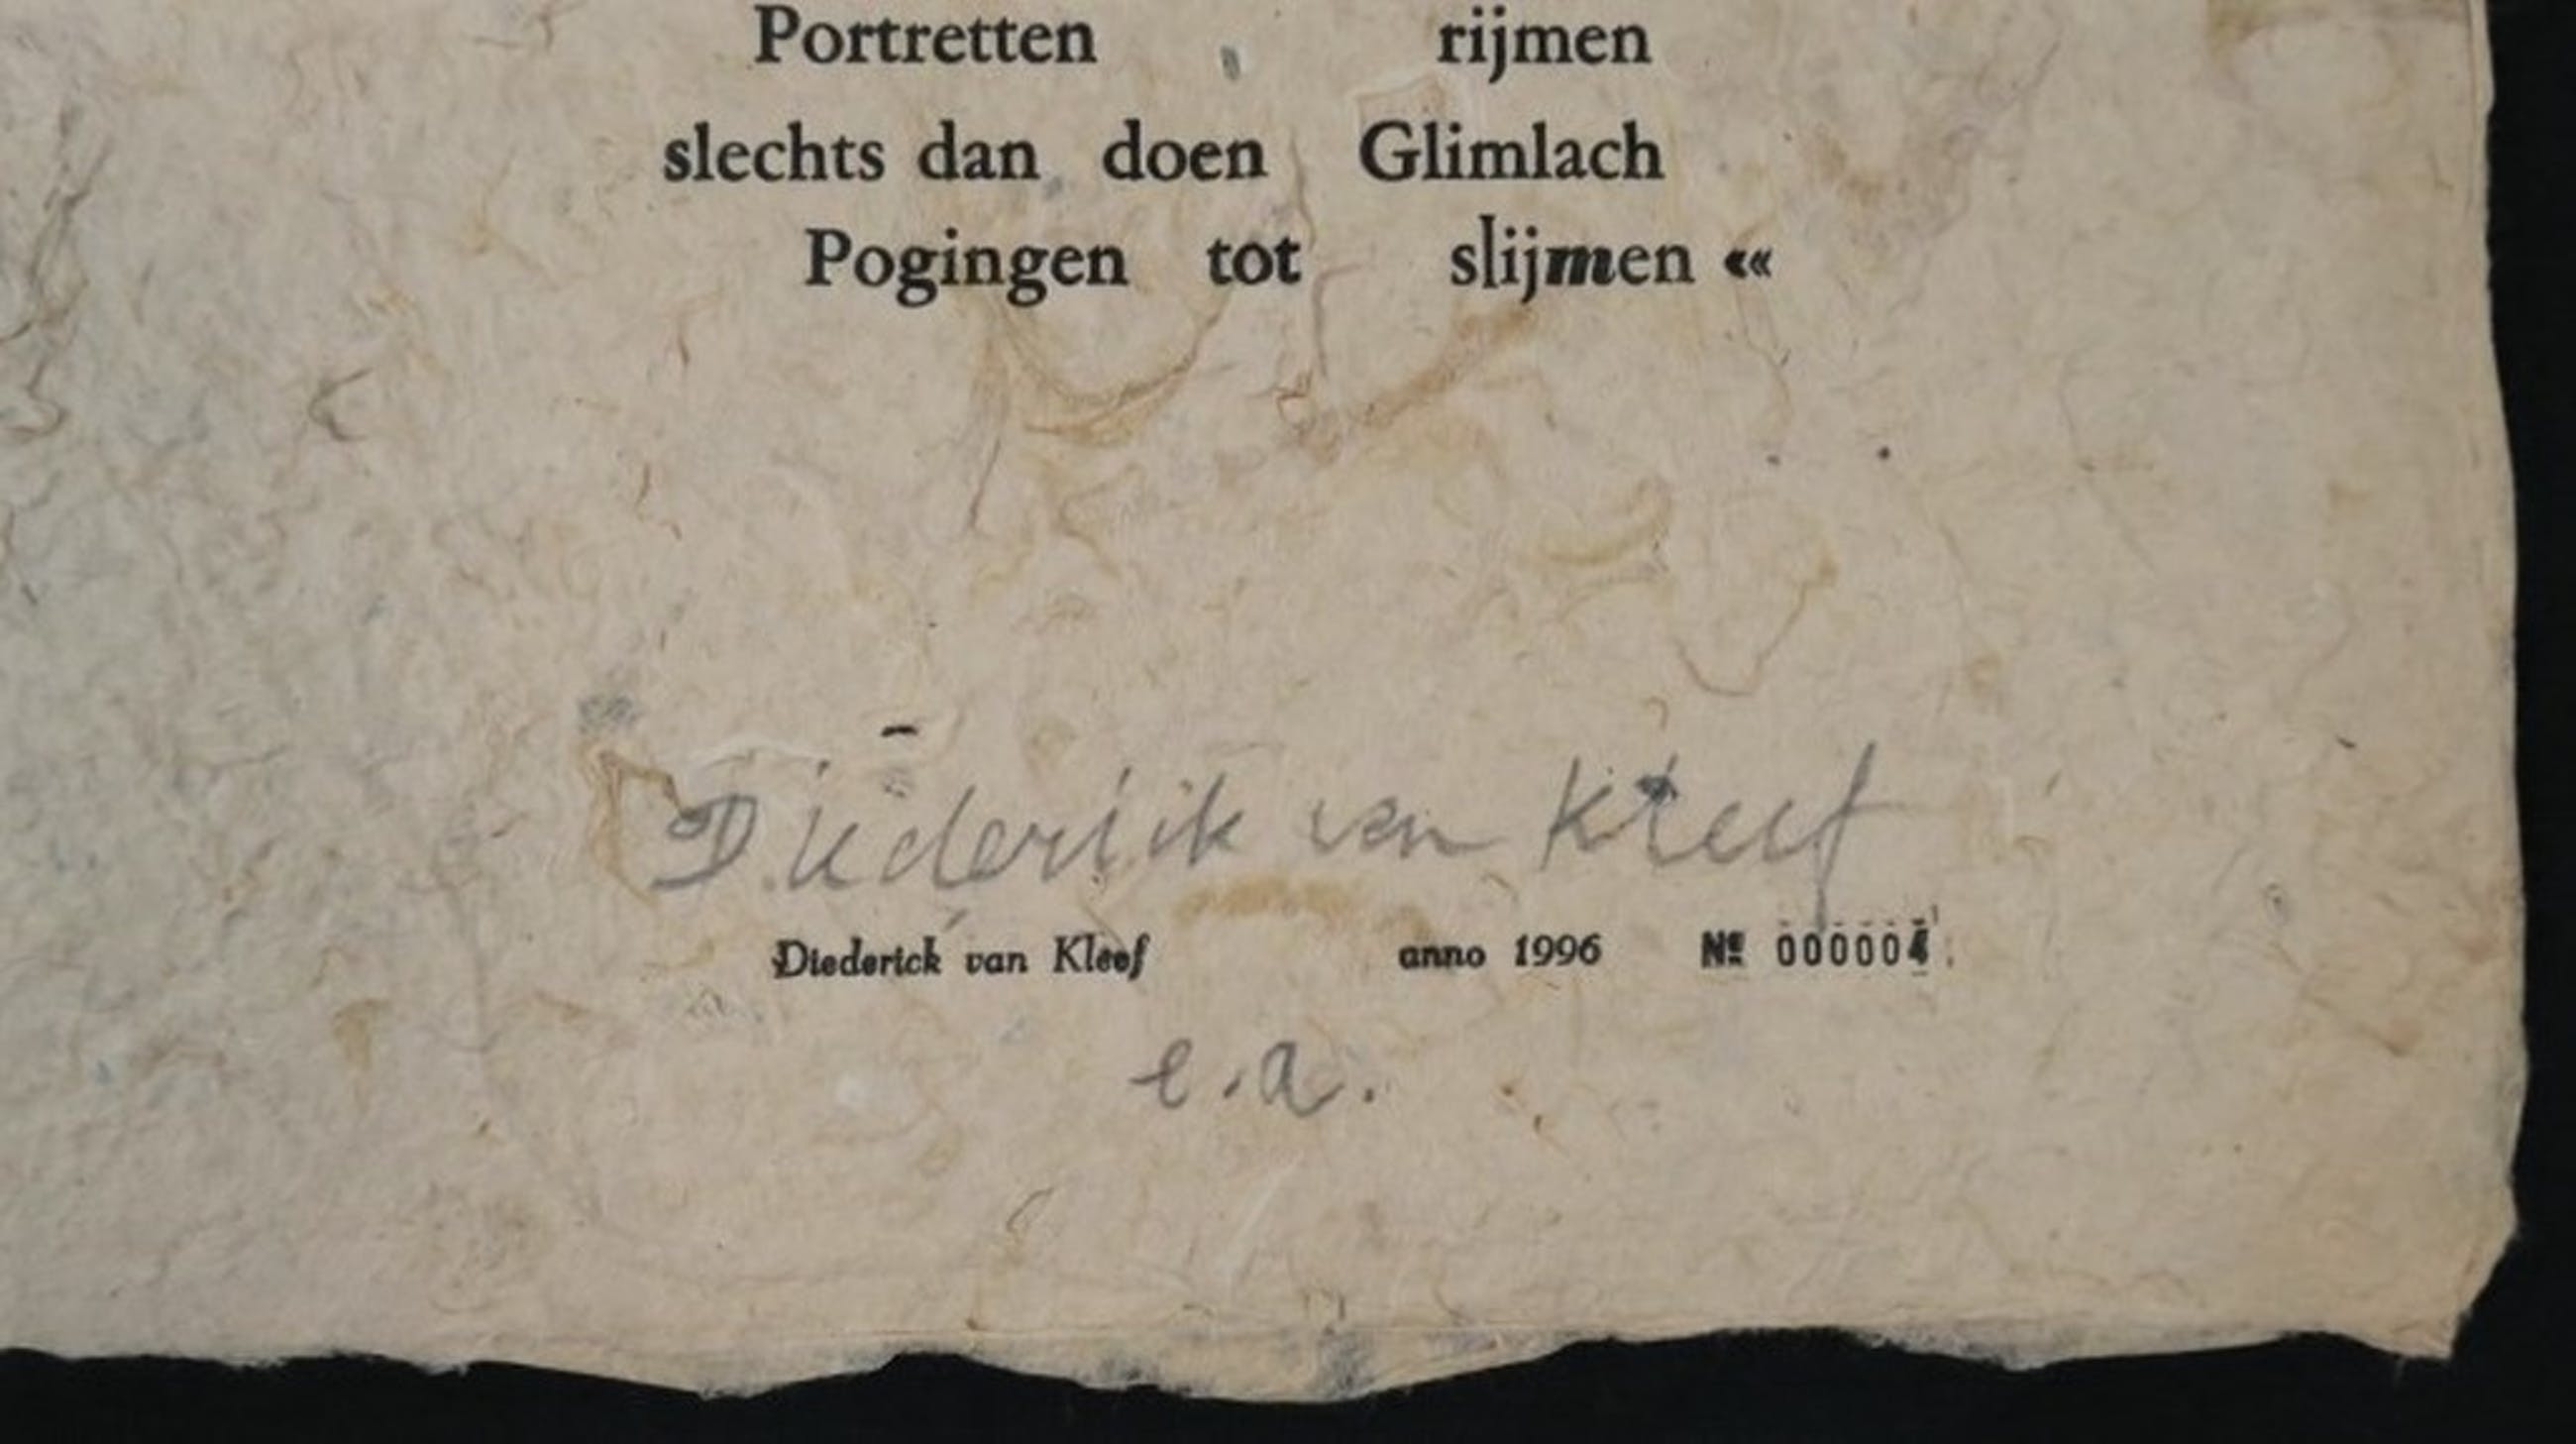 Portretten rijmen
slechts dan doen Glimlach
Pogingen tot slijmen ««
Diederik van Kleef
Diederick van Kleef anno 1996 Nº 000004
e.a.